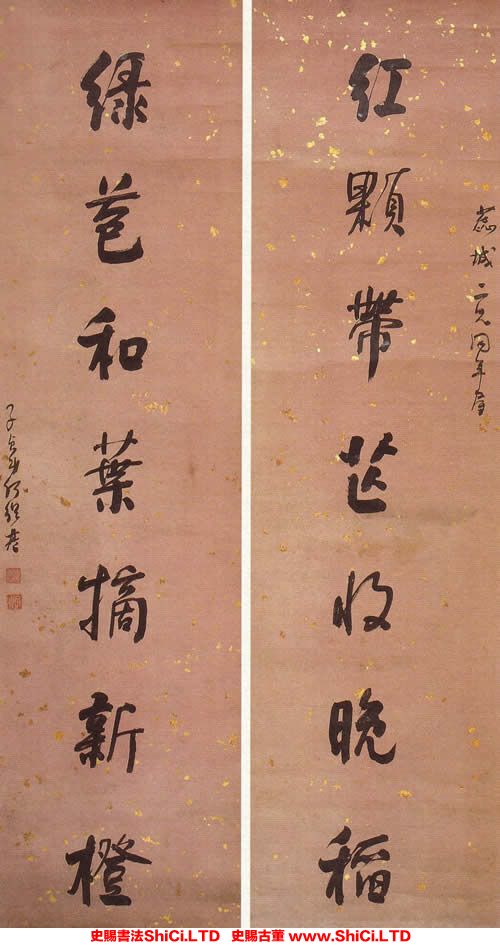 蕉城二兄同年屬
紅顆帶芒收晚稻
綠苞和葉摘新橙
子貞弟何紹基
史賜書法ShiCi.LTD 史賜古董 www.ShiCi.LTD